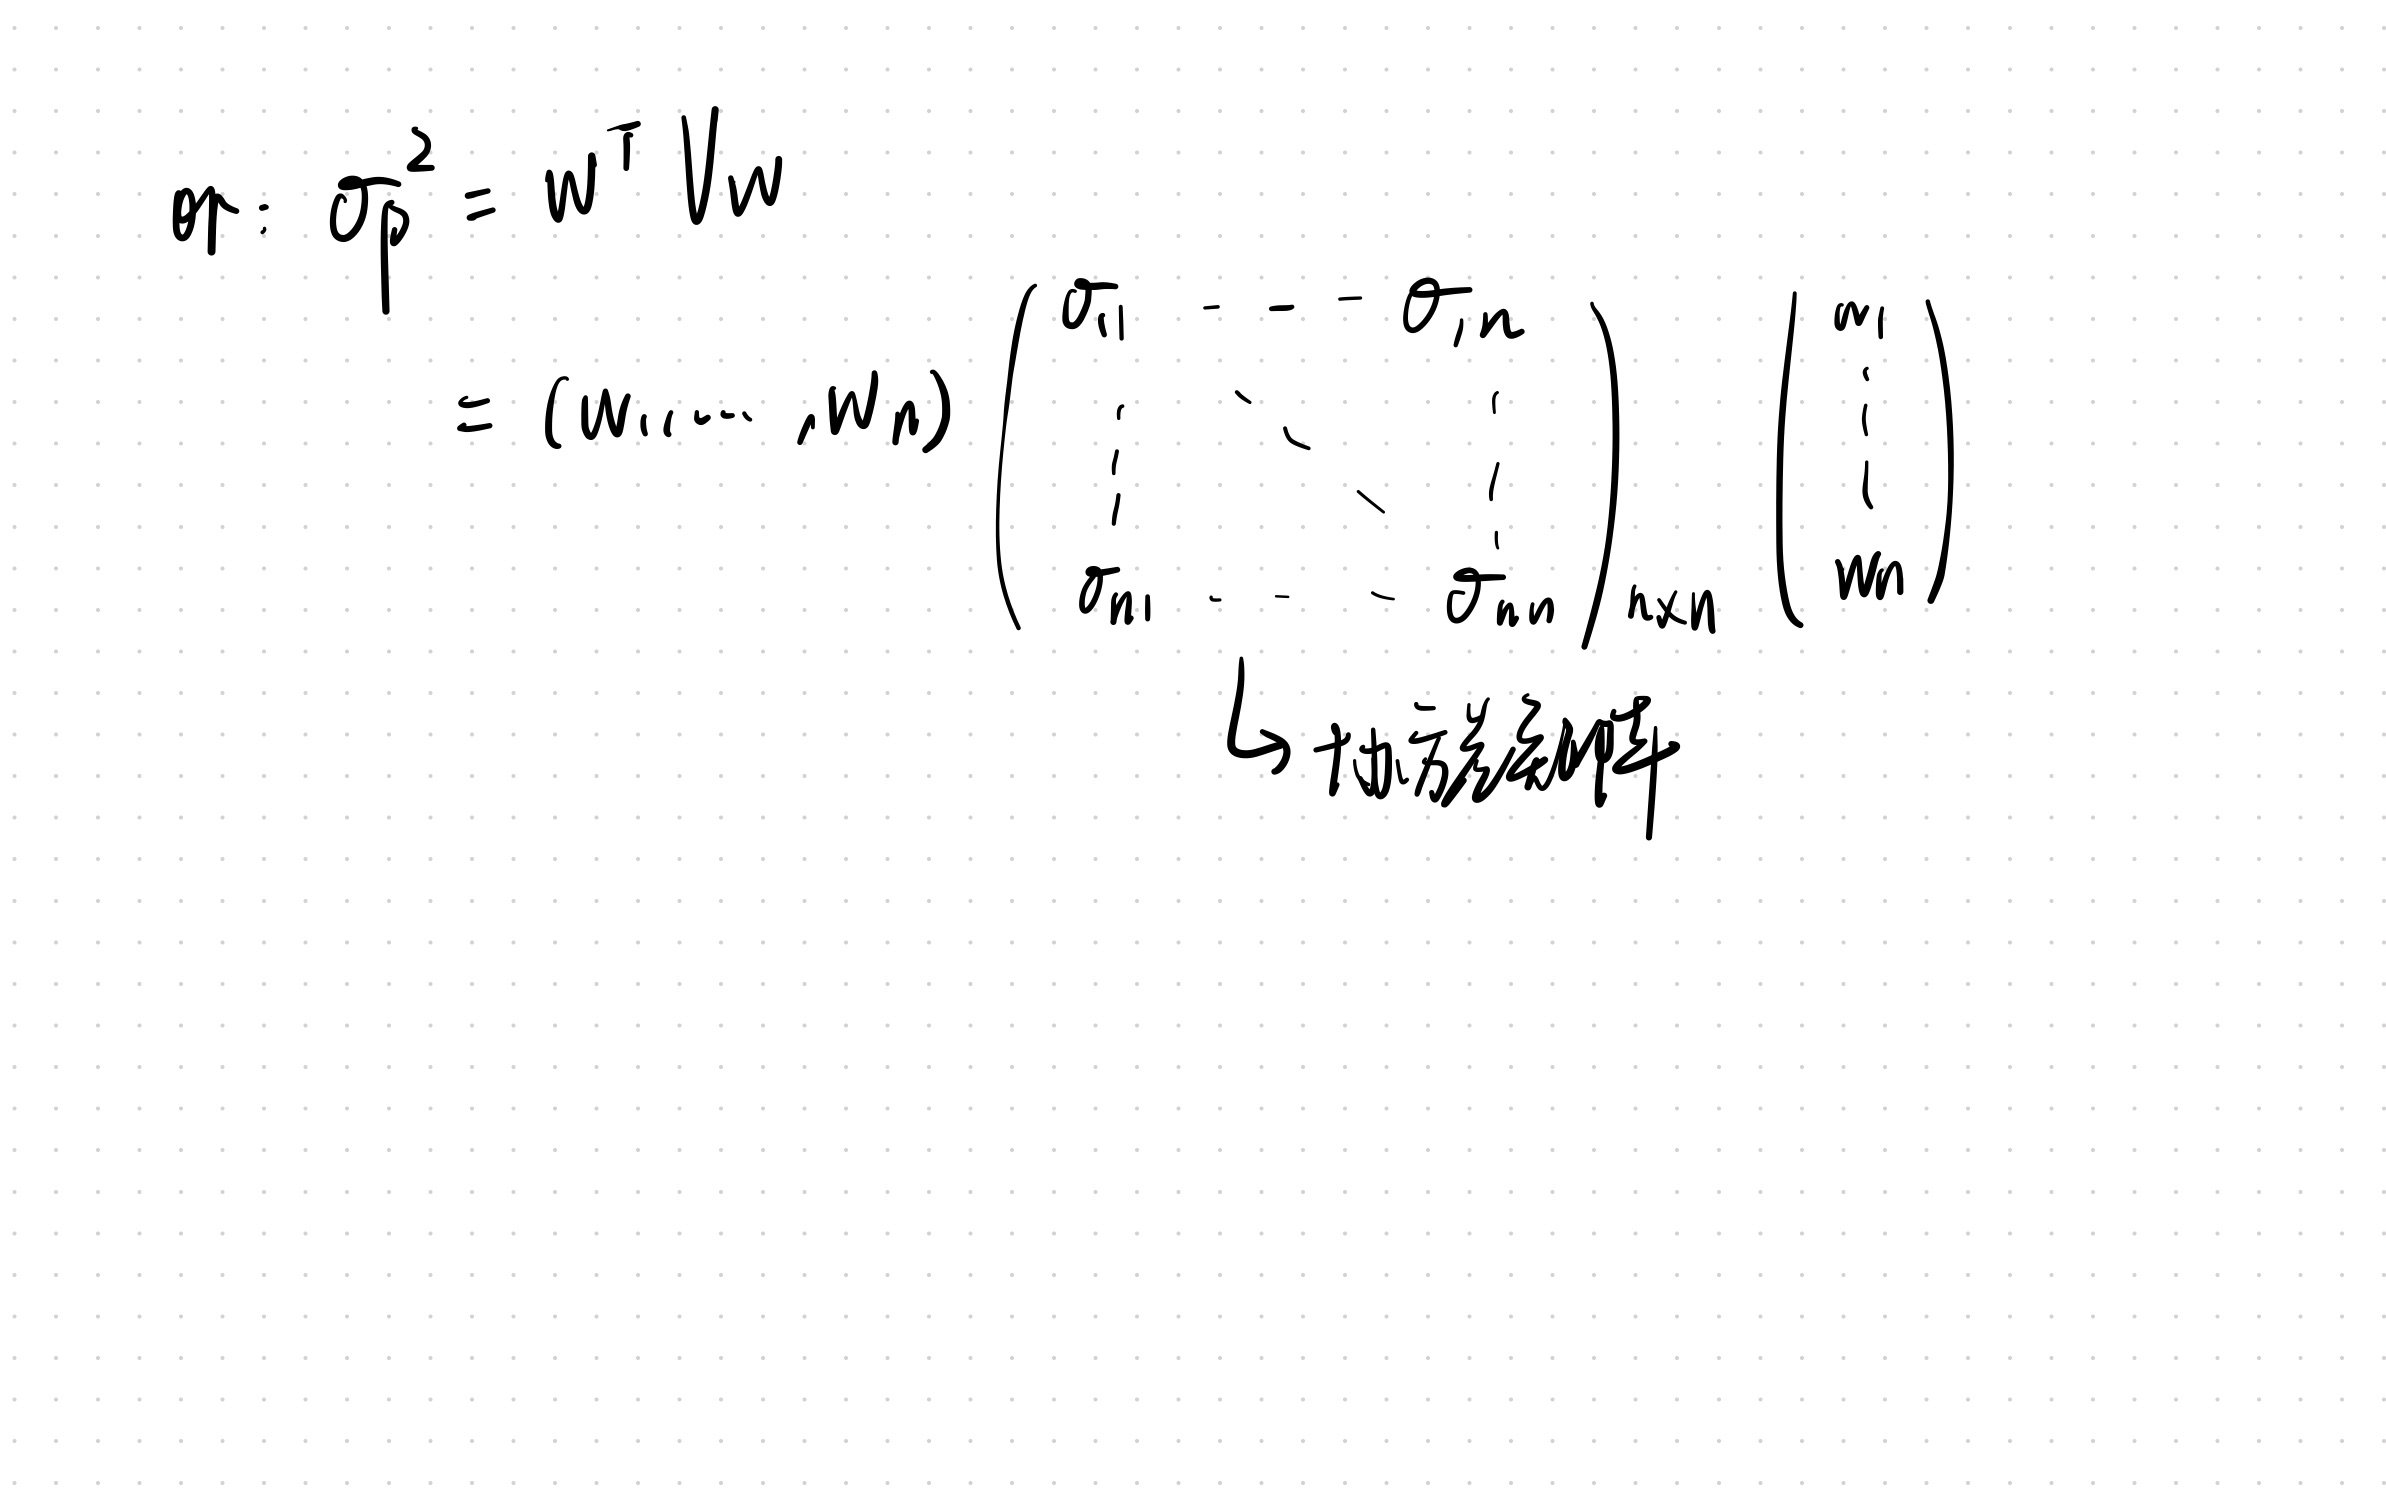 or: σp² = w^T V w
= (w₁, ..., wₙ) (σ₁₁ --- σ₁,n ⋮ ⋱ ⋮ σn1 --- σnn) n×n (w₁ ⋮ wn)
↳ 协方差矩阵